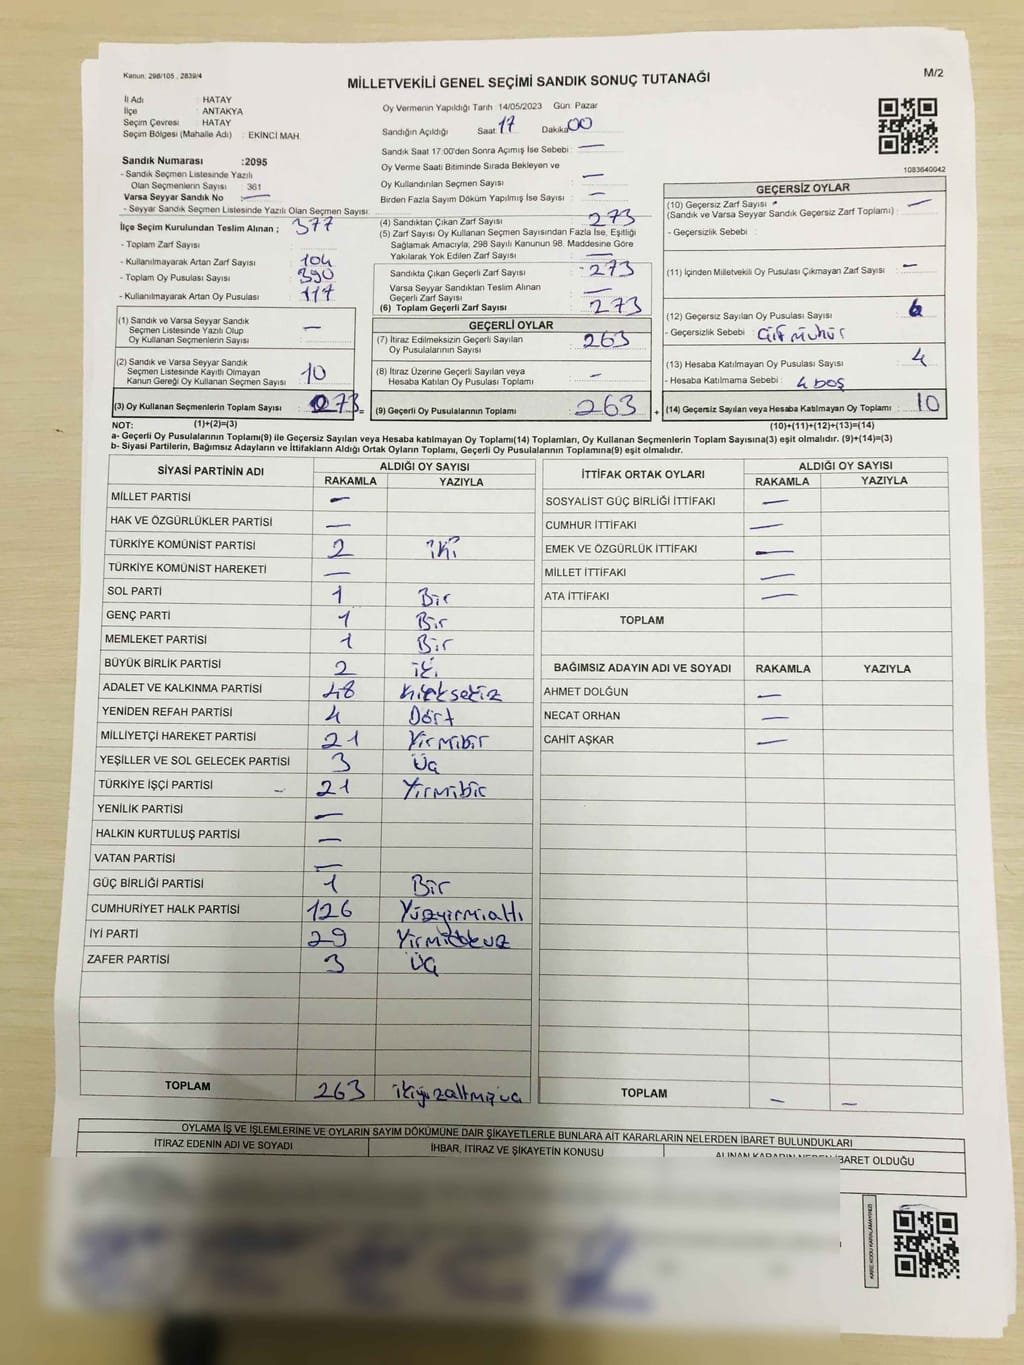 Kanun: 298/105 , 2839/4
MİLLETVEKİLİ GENEL SEÇİMİ SANDIK SONUÇ TUTANAĞI
M/2
İl Adı : HATAY
İlçe : ANTAKYA
Seçim Çevresi : HATAY
Seçim Bölgesi (Mahalle Adı) : EKİNCİ MAH.
Sandık Numarası :2095
- Sandık Seçmen Listesinde Yazılı
Olan Seçmenlerin Sayısı : 361
Varsa Seyyar Sandık No : —
- Seyyar Sandık Seçmen Listesinde Yazılı Olan Seçmen Sayısı:
İlçe Seçim Kurulundan Teslim Alınan ; 377
- Toplam Zarf Sayısı :
- Kullanılmayarak Artan Zarf Sayısı : 104
- Toplam Oy Pusulası Sayısı : 390
- Kullanılmayarak Artan Oy Pusulası : 117
(1) Sandık ve Varsa Seyyar Sandık
Seçmen Listesinde Yazılı Olup
Oy Kullanan Seçmenlerin Sayısı : —
(2) Sandık ve Varsa Seyyar Sandık
Seçmen Listesinde Kayıtlı Olmayan
Kanun Gereği Oy Kullanan Seçmen Sayısı : 10
(3) Oy Kullanan Seçmenlerin Toplam Sayısı : 273 =
Oy Vermenin Yapıldığı Tarih :14/05/2023 Gün: Pazar
Sandığın Açıldığı Saat: 17 Dakika: 00
Sandık Saat 17:00'den Sonra Açımış İse Sebebi : —
Oy Verme Saati Bitiminde Sırada Bekleyen ve
Oy Kullandırılan Seçmen Sayısı : —
Birden Fazla Sayım Döküm Yapılmış İse Sayısı : —
(4) Sandıktan Çıkan Zarf Sayısı : 273
(5) Zarf Sayısı Oy Kullanan Seçmen Sayısından Fazla İse, Eşitliği
Sağlamak Amacıyla, 298 Sayılı Kanunun 98. Maddesine Göre
Yakılarak Yok Edilen Zarf Sayısı : —
Sandıkta Çıkan Geçerli Zarf Sayısı : 273
Varsa Seyyar Sandıktan Teslim Alınan
Geçerli Zarf Sayısı : —
(6) Toplam Geçerli Zarf Sayısı : 273
GEÇERLİ OYLAR
(7) İtiraz Edilmeksizin Geçerli Sayılan
Oy Pusulalarının Sayısı : 263
(8) İtiraz Üzerine Geçerli Sayılan veya
Hesaba Katılan Oy Pusulası Toplamı : —
(9) Geçerli Oy Pusulalarının Toplamı : 263 +
1083640042
GEÇERSİZ OYLAR
(10) Geçersiz Zarf Sayısı
(Sandık ve Varsa Seyyar Sandık Geçersiz Zarf Toplamı) : —
- Geçersizlik Sebebi :
(11) İçinden Milletvekili Oy Pusulası Çıkmayan Zarf Sayısı : —
(12) Geçersiz Sayılan Oy Pusulası Sayısı : 6
- Geçersizlik Sebebi : Çift mühür
(13) Hesaba Katılmayan Oy Pusulası Sayısı : 4
- Hesaba Katılmama Sebebi : 4 boş
(14) Geçersiz Sayılan veya Hesaba Katılmayan Oy Toplamı : 10
NOT: (1)+(2)=(3) (10)+(11)+(12)+(13)=(14)
a- Geçerli Oy Pusulalarının Toplamı(9) ile Geçersiz Sayılan veya Hesaba katılmayan Oy Toplamı(14) Toplamları, Oy Kullanan Seçmenlerin Toplam Sayısına(3) eşit olmalıdır. (9)+(14)=(3)
b- Siyasi Partilerin, Bağımsız Adayların ve İttifakların Aldığı Ortak Oyların Toplamı, Geçerli Oy Pusulalarının Toplamına(9) eşit olmalıdır.
SİYASİ PARTİNİN ADI ALDIĞI OY SAYISI
RAKAMLA YAZIYLA
MİLLET PARTİSİ —
HAK VE ÖZGÜRLÜKLER PARTİSİ —
TÜRKİYE KOMÜNİST PARTİSİ 2 iki
TÜRKİYE KOMÜNİST HAREKETİ —
SOL PARTİ 1 Bir
GENÇ PARTİ 1 Bir
MEMLEKET PARTİSİ 1 Bir
BÜYÜK BİRLİK PARTİSİ 2 iki
ADALET VE KALKINMA PARTİSİ 48 kırksekiz
YENİDEN REFAH PARTİSİ 4 Dört
MİLLİYETÇİ HAREKET PARTİSİ 21 Yirmibir
YEŞİLLER VE SOL GELECEK PARTİSİ 3 Üç
TÜRKİYE İŞÇİ PARTİSİ 21 Yirmibir
YENİLİK PARTİSİ —
HALKIN KURTULUŞ PARTİSİ —
VATAN PARTİSİ —
GÜÇ BİRLİĞİ PARTİSİ 1 Bir
CUMHURİYET HALK PARTİSİ 126 Yüzyirmialtı
İYİ PARTİ 29 Yirmidokuz
ZAFER PARTİSİ 3 Üç
TOPLAM 263 ikiyüzaltmışüç
İTTİFAK ORTAK OYLARI ALDIĞI OY SAYISI
RAKAMLA YAZIYLA
SOSYALİST GÜÇ BİRLİĞİ İTTİFAKI —
CUMHUR İTTİFAKI —
EMEK VE ÖZGÜRLÜK İTTİFAKI —
MİLLET İTTİFAKI —
ATA İTTİFAKI —
TOPLAM
BAĞIMSIZ ADAYIN ADI VE SOYADI RAKAMLA YAZIYLA
AHMET DOLĞUN —
NECAT ORHAN —
CAHİT AŞKAR —
TOPLAM — —
OYLAMA İŞ VE İŞLEMLERİNE VE OYLARIN SAYIM DÖKÜMÜNE DAİR ŞİKAYETLERLE BUNLARA AİT KARARLARIN NELERDEN İBARET BULUNDUKLARI
İTİRAZ EDENİN ADI VE SOYADI İHBAR, İTİRAZ VE ŞİKAYETİN KONUSU ALINAN KARARIN NEDEN İBARET OLDUĞU
KARE KODU KARALAMAYINIZ!